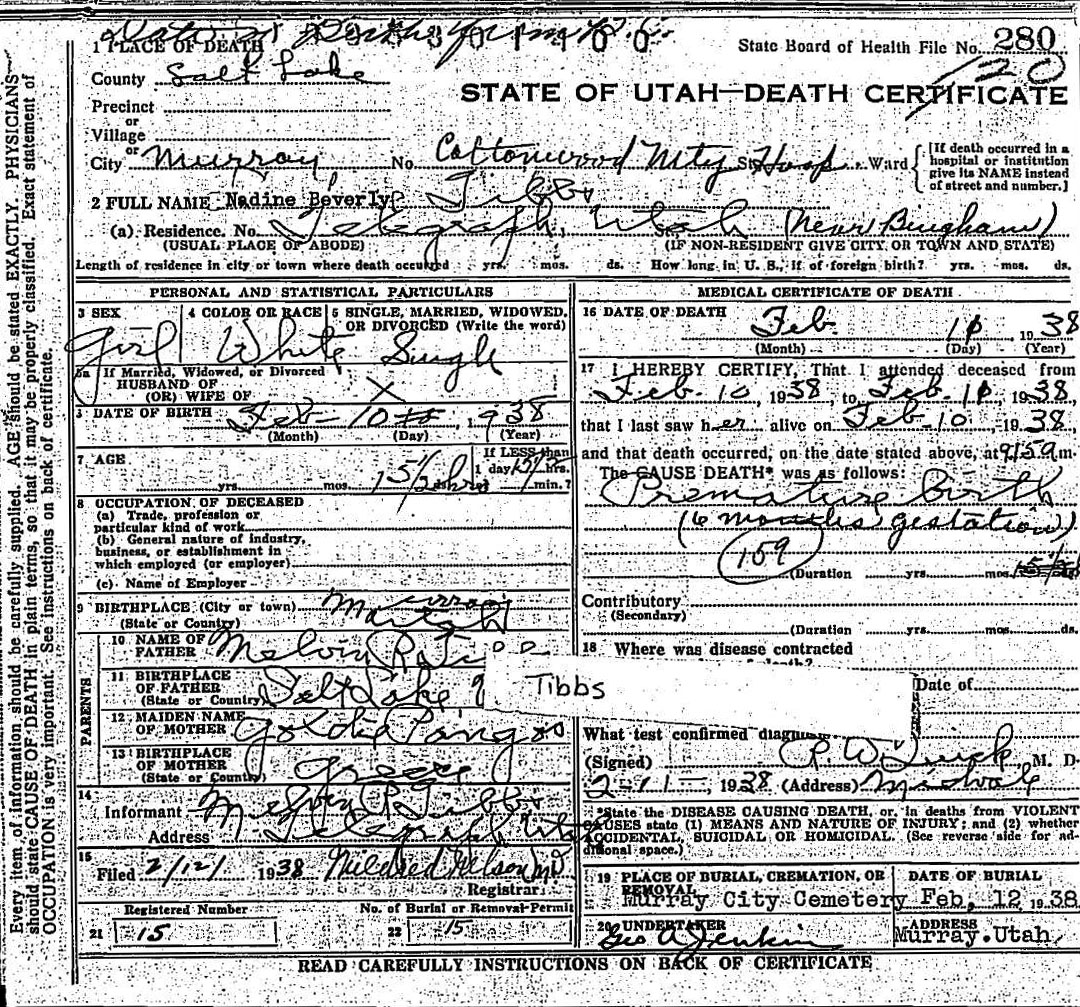 Date of Death from P.C.
1 PLACE OF DEATH
State Board of Health File No. 280
120
County Salt Lake
STATE OF UTAH—DEATH CERTIFICATE
Precinct
or
Village
or
City Murray No. Cottonwood Mty St. Hosp. Ward
[If death occurred in a hospital or institution give its NAME instead of street and number.]
2 FULL NAME Nadine Beverly Tibbs
(a) Residence. No. Telegraph, Utah (Near Bingham)
(USUAL PLACE OF ABODE) (IF NON-RESIDENT GIVE CITY OR TOWN AND STATE)
Length of residence in city or town where death occurred yrs. mos. ds. How long in U. S., if of foreign birth? yrs. mos. ds.
PERSONAL AND STATISTICAL PARTICULARS
3 SEX 4 COLOR OR RACE 5 SINGLE, MARRIED, WIDOWED, OR DIVORCED (Write the word)
Girl White Single
5a If Married, Widowed, or Divorced
HUSBAND OF
(OR) WIFE OF X
DATE OF BIRTH Feb 10 1938
(Month) (Day) (Year)
7 AGE yrs. mos. 15 1/2 hrs
If LESS than 1 day hrs. min.?
8 OCCUPATION OF DECEASED
(a) Trade, profession or
particular kind of work
(b) General nature of industry,
business, or establishment in
which employed (or employer)
(c) Name of Employer
9 BIRTHPLACE (City or town) Murray
(State or Country) Utah
PARENTS
10 NAME OF FATHER Melvin P. Ti
11 BIRTHPLACE OF FATHER Salt Lake
(State or Country)
12 MAIDEN NAME OF MOTHER Goldie Pangos
13 BIRTHPLACE OF MOTHER Greece
(State or Country)
14
Informant Melvin P. Tibbs
Address Telegraph Utah
15
Filed 2/12/ 1938 Mildred Nelson MD
Registrar
Registered Number No. of Burial or Removal Permit
21 15 22 15
MEDICAL CERTIFICATE OF DEATH
16 DATE OF DEATH Feb 1938
(Month) (Day) (Year)
17 I HEREBY CERTIFY, That I attended deceased from
Feb. 10, 1938, to Feb. 1938,
that I last saw her alive on Feb 10, 1938,
and that death occurred, on the date stated above, at 9:59 m.
The CAUSE DEATH* was as follows:
Premature Birth
(6 months gestation)
159
(Duration yrs. mos.
Contributory
(Secondary)
(Duration yrs. mos. ds.
18 Where was disease contracted
Tibbs
Date of
What test confirmed diagnosis
(Signed) P. W. Quick, M. D.
2-11-, 1938 (Address) Midvale
*State the DISEASE CAUSING DEATH, or, in deaths from VIOLENT
CAUSES state (1) MEANS AND NATURE OF INJURY; and (2) whether
ACCIDENTAL, SUICIDAL OR HOMICIDAL. (See reverse side for additional space.)
19 PLACE OF BURIAL, CREMATION, OR REMOVAL DATE OF BURIAL
Murray City Cemetery Feb, 12, 1938
20 UNDERTAKER ADDRESS
Geo A Jenkin Murray.Utah
READ CAREFULLY INSTRUCTIONS ON BACK OF CERTIFICATE
Every item of information should be carefully supplied. AGE should be stated EXACTLY. PHYSICIANS
should state CAUSE OF DEATH in plain terms, so that it may be properly classified. Exact statement of
OCCUPATION is very important. See instructions on back of certificate.